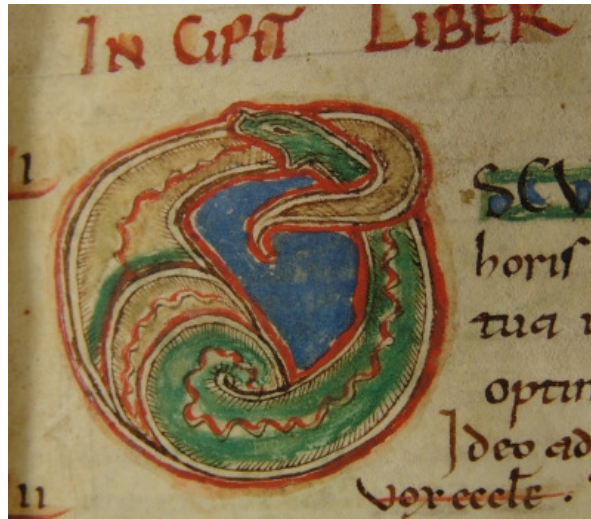 IN CIPIT LIBER
I
SCV
horis
tua
optin
Ideo ad
vox eccle .
II